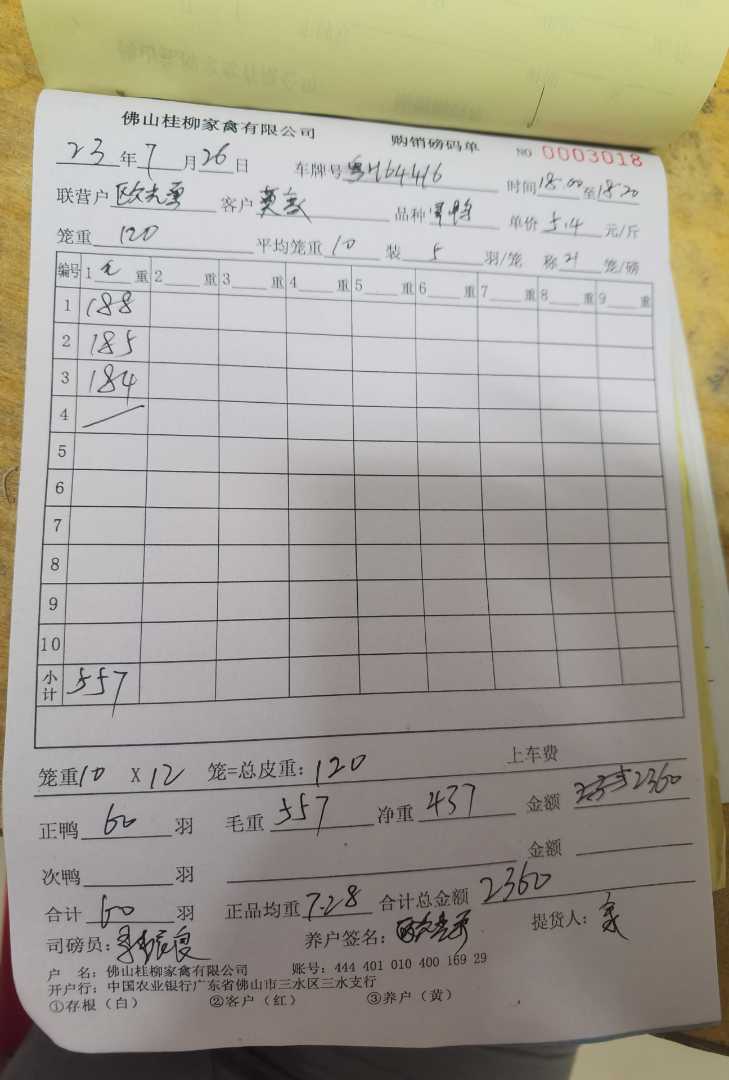 佛山桂柳家禽有限公司 购销磅码单 NO 0003018
23年7月26日 车牌号 时间18:00至18:20
联营户 客户 品种 单价5.4元/斤
笼重120 平均笼重10 装5羽/笼 称 笼/磅
编号 1 毛 重 2 重 3 重 4 重 5 重 6 重 7 重 8 重 9 重
1 188
2 185
3 184
4
5
6
7
8
9
10
小计 557
笼重10 X 12 笼=总皮重:120 上车费
正鸭60羽 毛重557 净重437 金额2360
次鸭 羽 金额
合计60羽 正品均重7.28 合计总金额2360
司磅员: 养户签名: 提货人:
户 名:佛山桂柳家禽有限公司 账号:444 401 010 400 169 29
开户行:中国农业银行广东省佛山市三水区三水支行
①存根(白) ②客户(红) ③养户(黄)